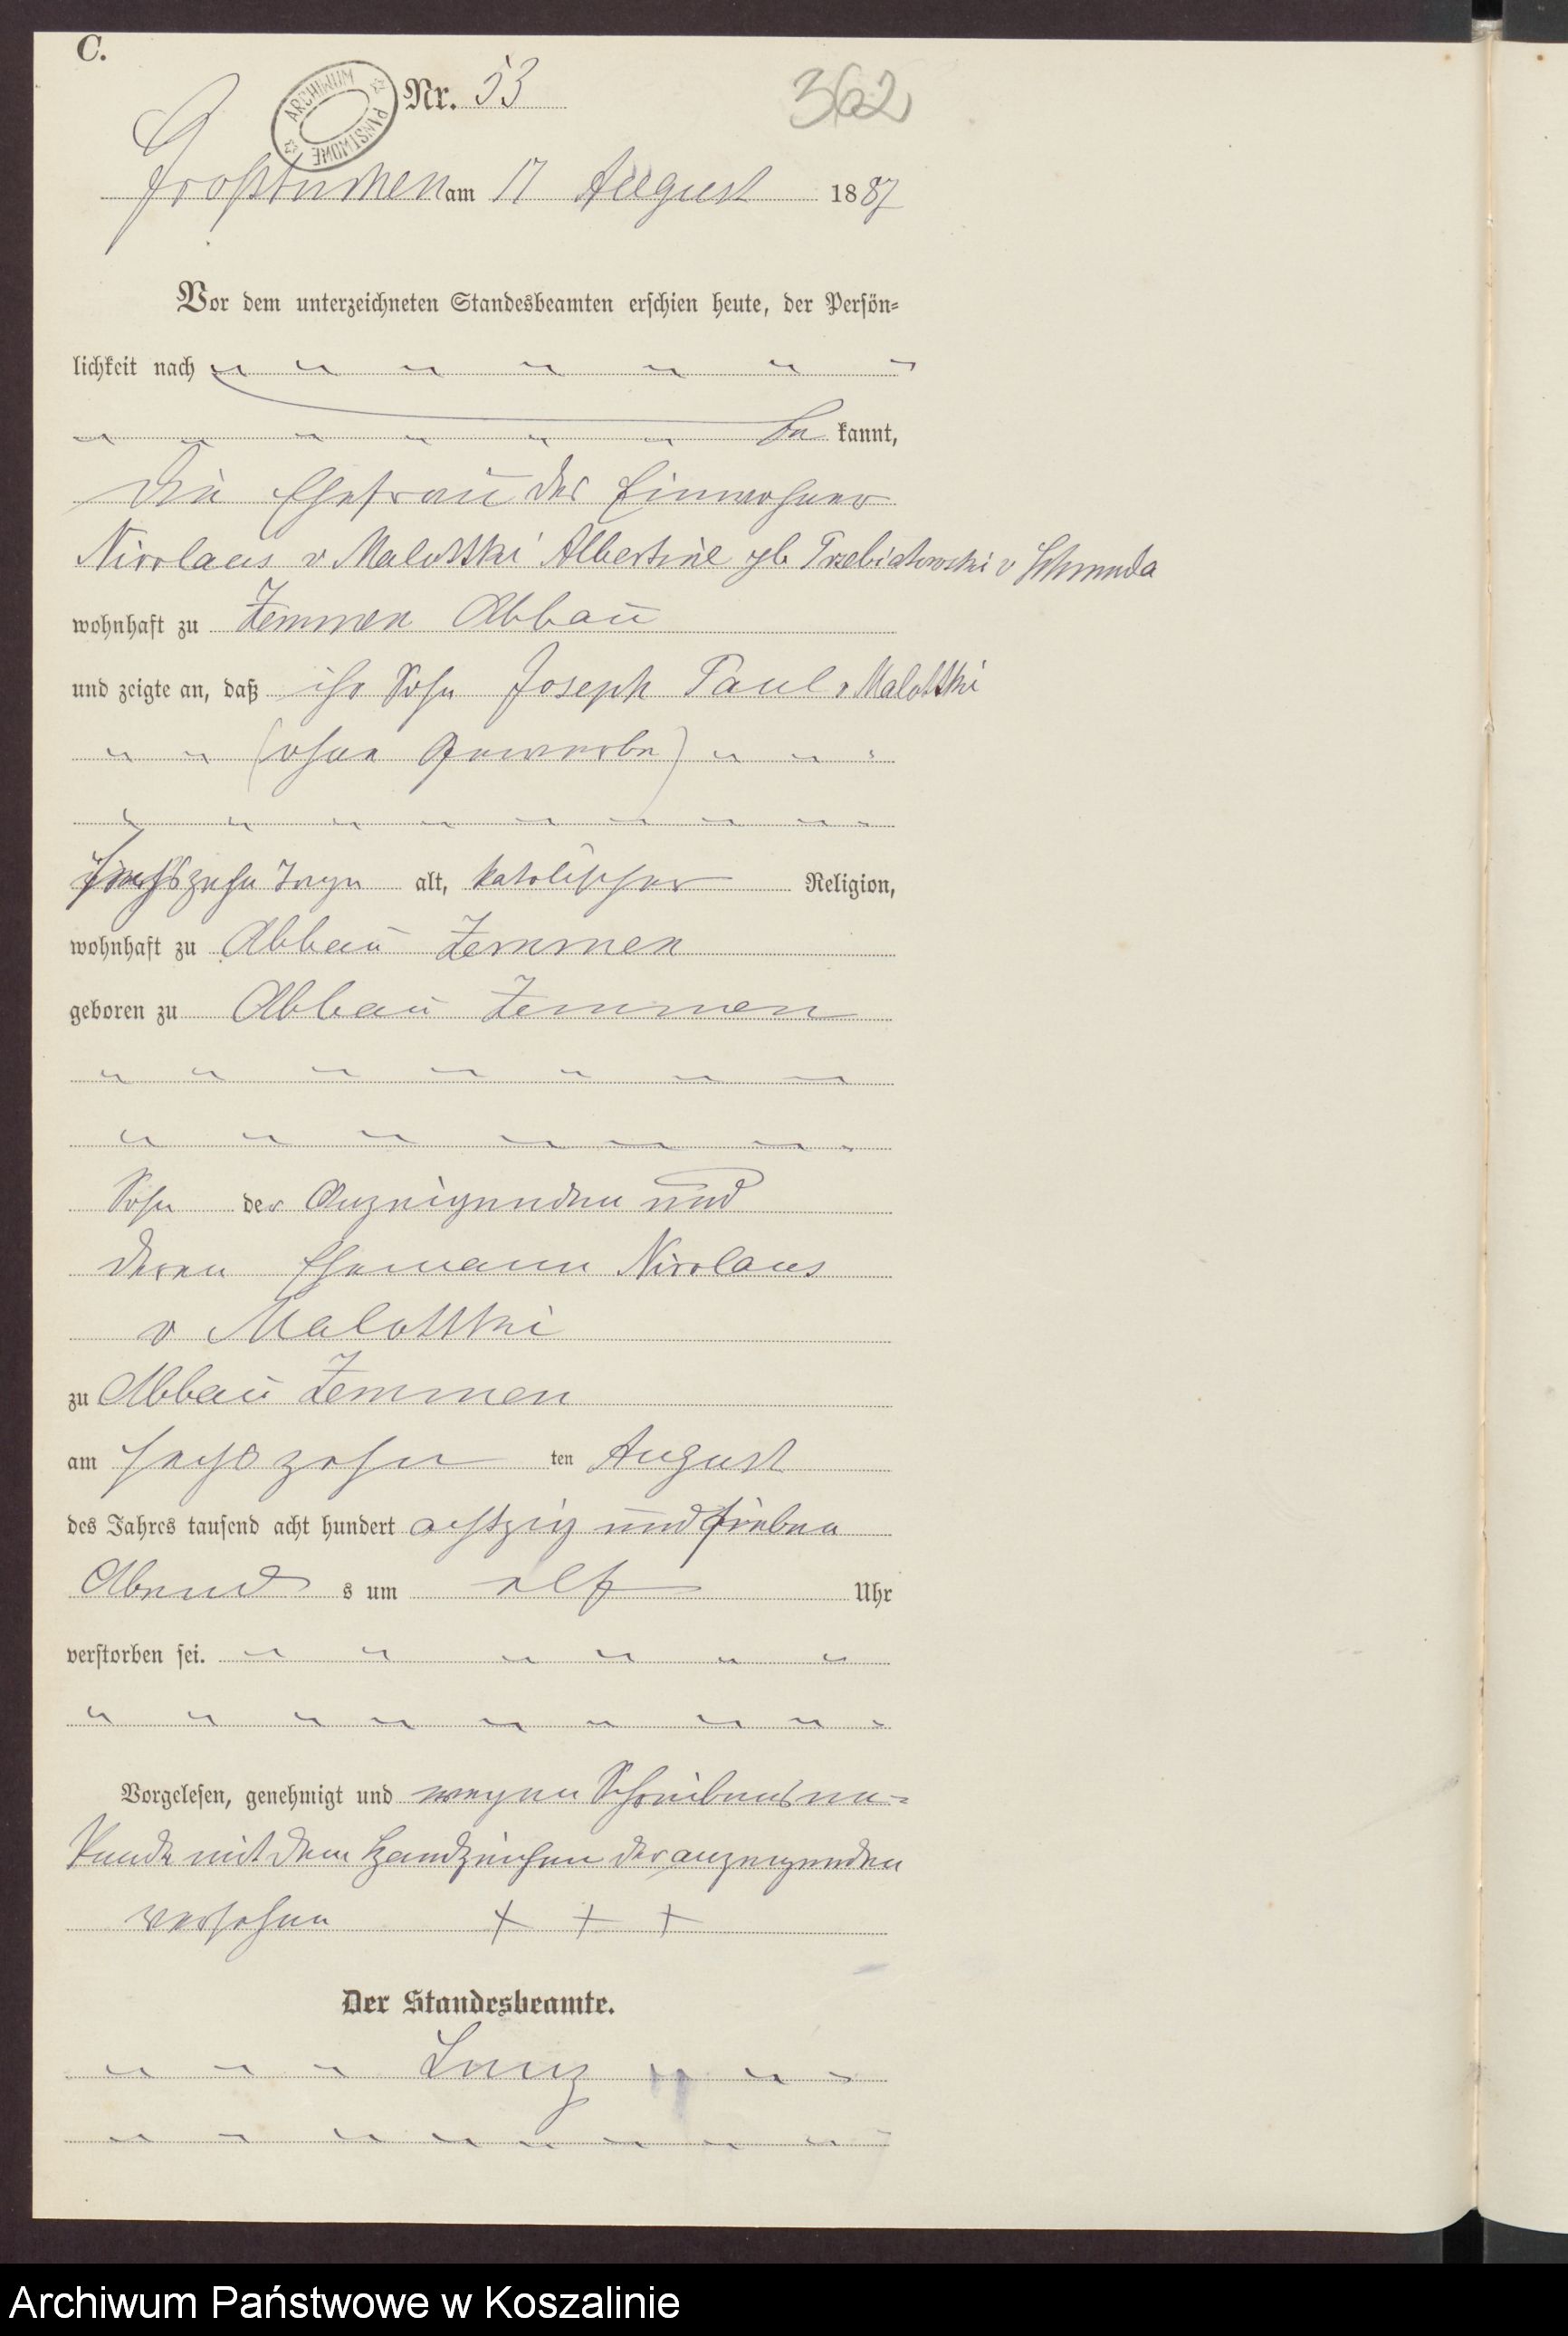 C.
ARCHIWUM PAŃSTWOWE
Nr. 53
362
Großtuchen am 17 August 1887
Vor dem unterzeichneten Standesbeamten erschien heute, der Persön=
lichkeit nach
be kannt,
die Ehefrau des Einwohner
Nicolaus v Malottki Albertine geb Trzebiatowski v
wohnhaft zu Zemmen Abbau
und zeigte an, daß ihr Sohn Joseph Paul v Malottki
(ohne Gewerbe)
zehn Tage alt, katolischer Religion,
wohnhaft zu Abbau Zemmen
geboren zu Abbau Zemmen
Sohn der Anzeigenden und
deren Ehemann Nicolaus
v Malottki
zu Abbau Zemmen
am sechszehn ten August
des Jahres tausend acht hundert achtzig und sieben
Abend s um elf Uhr
verstorben sei.
Vorgelesen, genehmigt und wegen Schreibensun=
kunde mit dem Handzeichen der anzeigenden
versehen + + +
Der Standesbeamte.
Archiwum Państwowe w Koszalinie